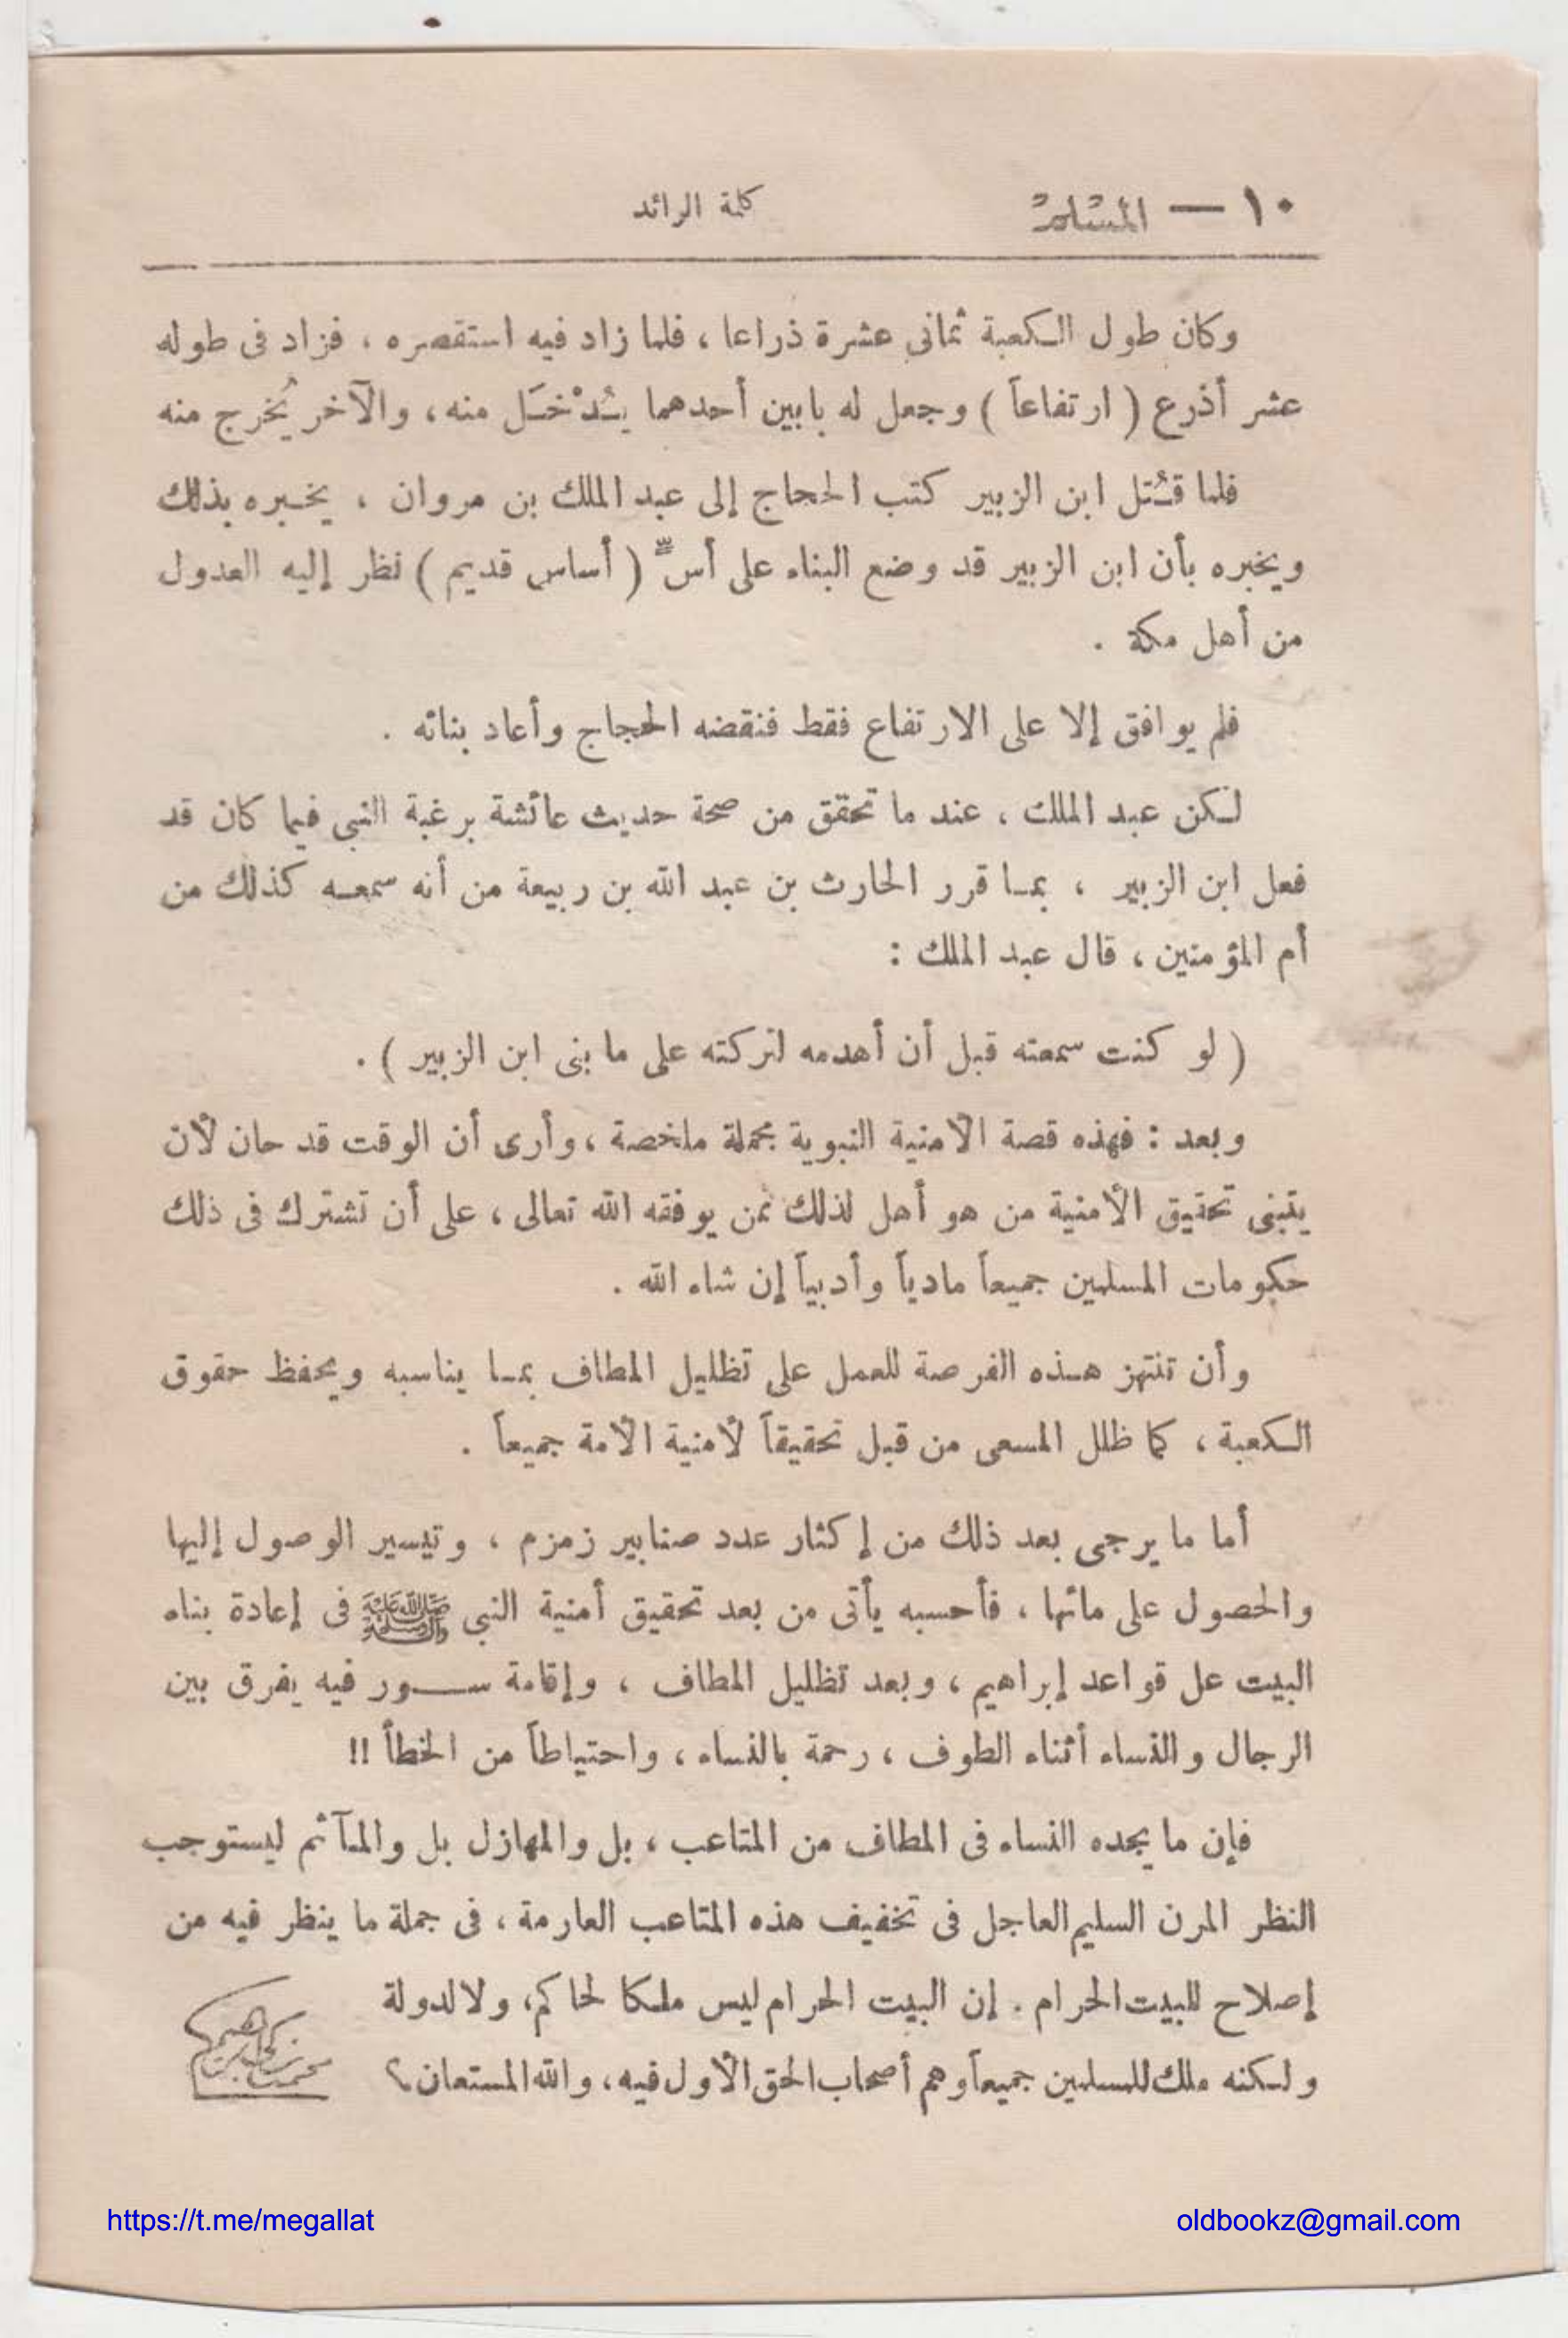 ١٠ — المسلم
كلمة الرائد
وكان طول الكعبة ثمانى عشرة ذراعا ، فلما زاد فيه استقصره ، فزاد فى طوله
عشر أذرع ( ارتفاعاً ) وجعل له بابين أحدهما يُدْخَل منه ، والآخر يُخرج منه
فلما قُتل ابن الزبير كتب الحجاج إلى عبد الملك بن مروان ، يخبره بذلك
ويخبره بأن ابن الزبير قد وضع البناء على أسٍّ ( أساس قديم ) نظر إليه العدول
من أهل مكة .
فلم يوافق إلا على الارتفاع فقط فنقضه الحجاج وأعاد بنائه .
لكن عبد الملك ، عند ما تحقق من صحة حديث عائشة برغبة النبى فيما كان قد
فعل ابن الزبير ، بما قرر الحارث بن عبد الله بن ربيعة من أنه سمعه كذلك من
أم المؤمنين ، قال عبد الملك :
( لو كنت سمعته قبل أن أهدمه لتركته على ما بنى ابن الزبير ) .
وبعد : فهذه قصة الأمنية النبوية مجملة ملخصة ، وأرى أن الوقت قد حان لأن
يتبنى تحقيق الأمنية من هو أهل لذلك ممن يوفقه الله تعالى ، على أن تشترك فى ذلك
حكومات المسلمين جميعاً مادياً وأدبياً إن شاء الله .
وأن تنتهز هذه الفرصة للعمل على تظليل المطاف بما يناسبه ويحفظ حقوق
الكعبة ، كما ظلل المسعى من قبل تحقيقاً لأمنية الأمة جميعاً .
أما ما يرجى بعد ذلك من إكثار عدد صنابير زمزم ، وتيسير الوصول إليها
والحصول على مائها ، فأحسبه يأتى من بعد تحقيق أمنية النبى ﷺ فى إعادة بناء
البيت عل قواعد إبراهيم ، وبعد تظليل المطاف ، وإقامة سور فيه يفرق بين
الرجال والنساء أثناء الطوف ، رحمة بالنساء ، واحتياطاً من الخطأ !!
فإن ما يجده النساء فى المطاف من المتاعب ، بل والمهازل بل والمآثم ليستوجب
النظر المرن السليم العاجل فى تخفيف هذه المتاعب العارمة ، فى جملة ما ينظر فيه من
إصلاح للبيت الحرام . إن البيت الحرام ليس ملكا لحاكم ، ولا لدولة
ولكنه ملك للمسلمين جميعاً وهم أصحاب الحق الأول فيه ، والله المستعان ؟
https://t.me/megallat
oldbookz@gmail.com